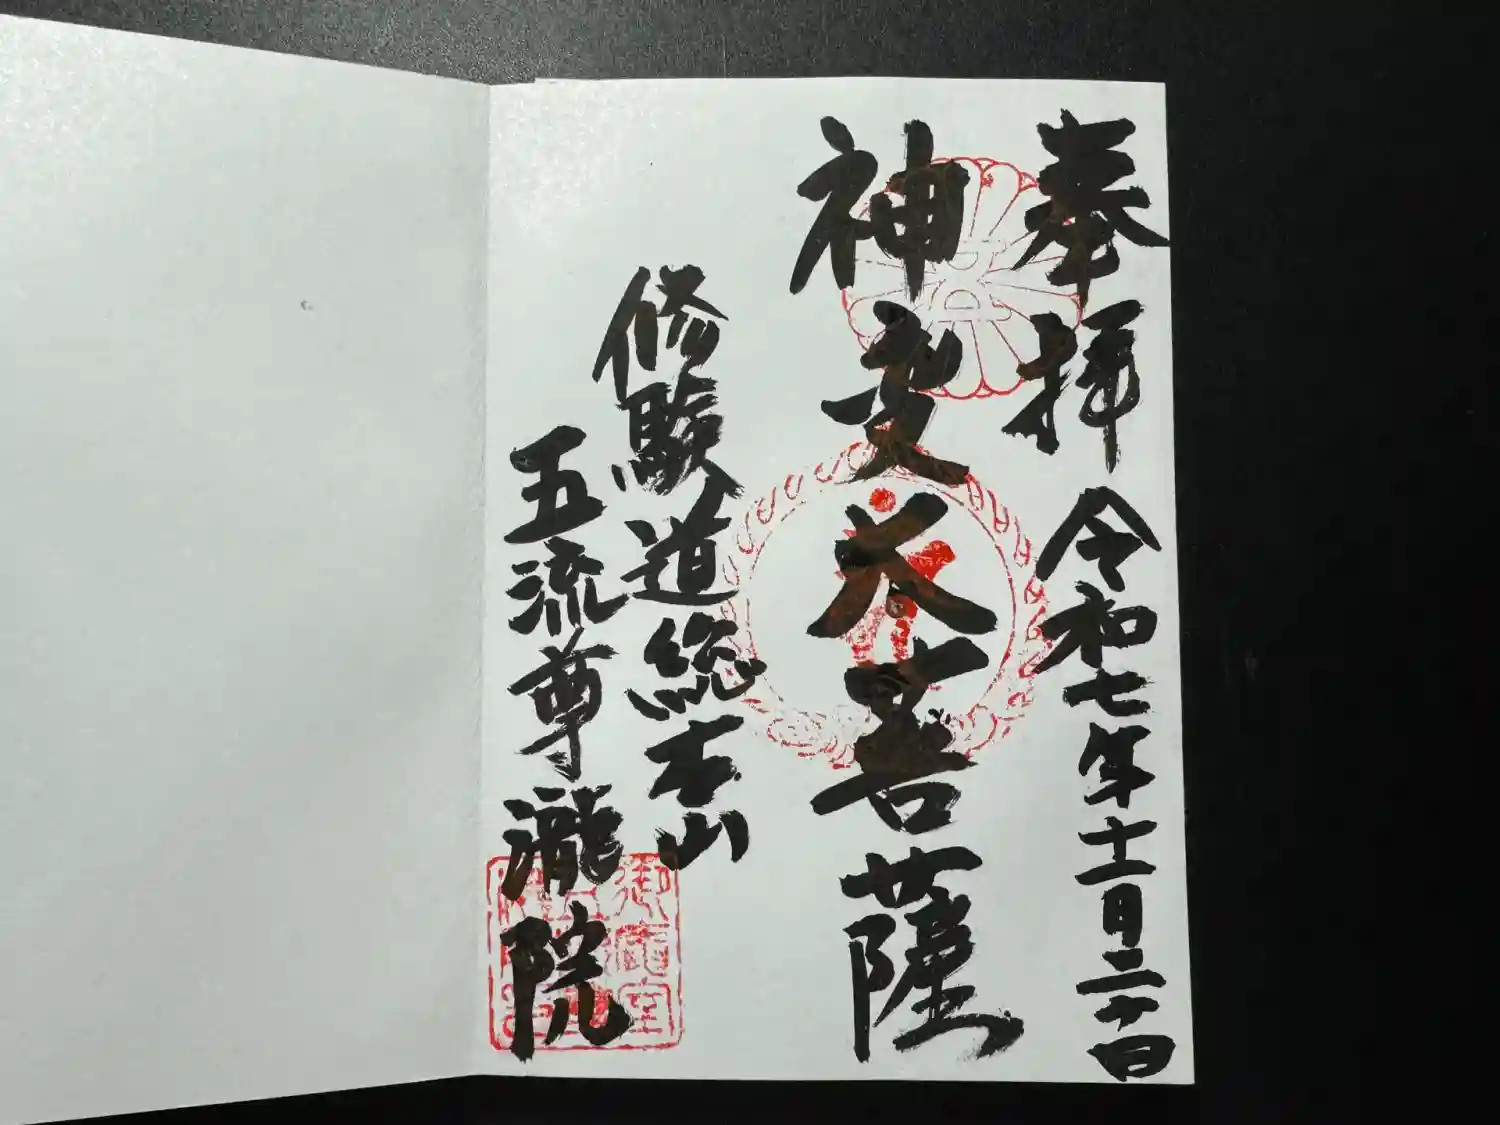 奉拝 令和七年十一月二十日
神変大菩薩
修験道総本山
五流尊瀧院